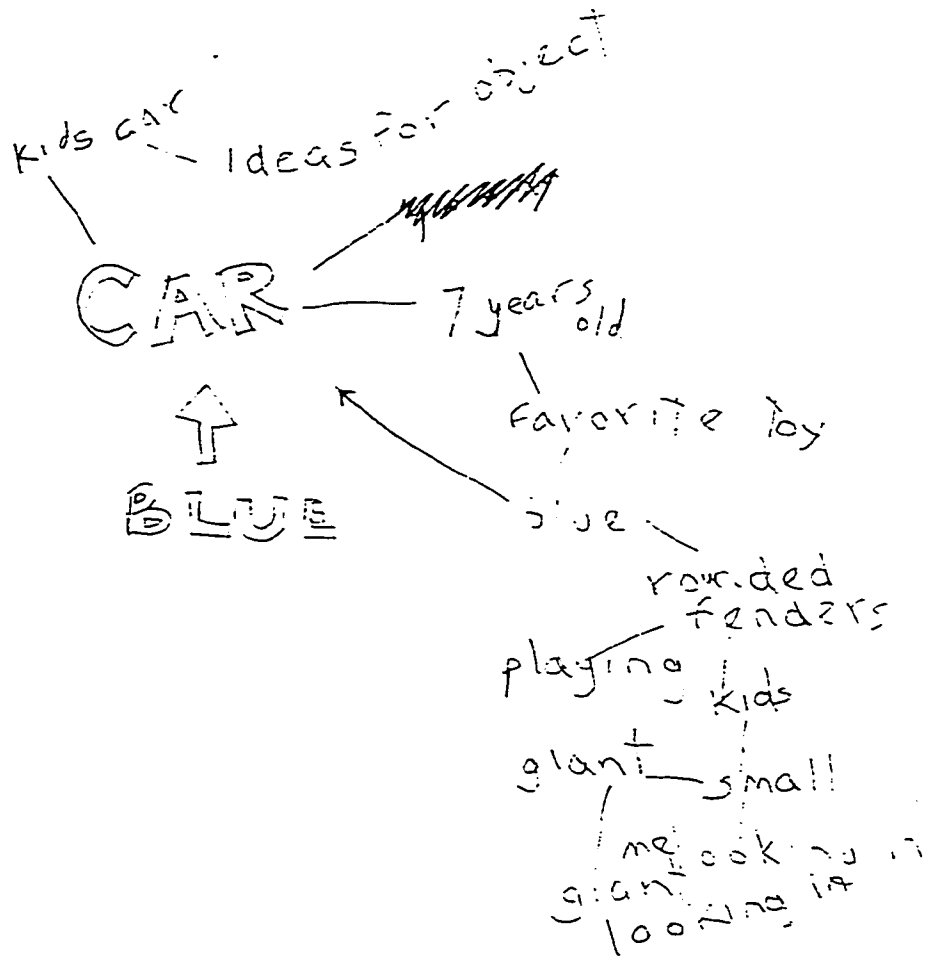 kids car
Ideas for object
CAR
7 years
old
Favorite toy
BLUE
blue
rounded
fenders
playing
kids
giant
small
me looking in
giant
looking in